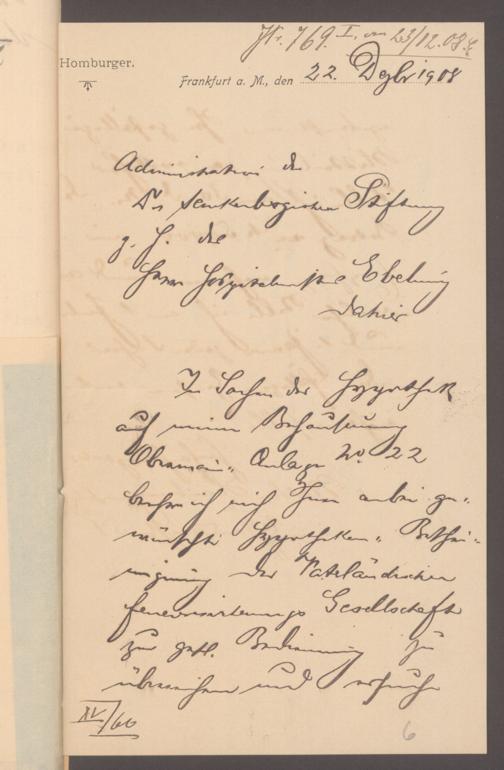 Nr. 769. I. vom 23/12.08.
Homburger.
Frankfurt a. M., den 22. Dezbr 1908
Administration der
Dr. Senckenbergischen Stiftung
z. H. des
Herrn Hospitalmstr. Ebeling
dahier
In Sachen der Hypothek
auf meine Behausung
Obermain-Anlage No. 22
beehre ich mich Ihnen anbei ge-
wünschte Hypotheken-Beschei-
nigung der Vaterländischen
Feuerversicherungs Gesellschaft
zur gefl. Bedienung zu
überreichen und ersuche
XV/60
6